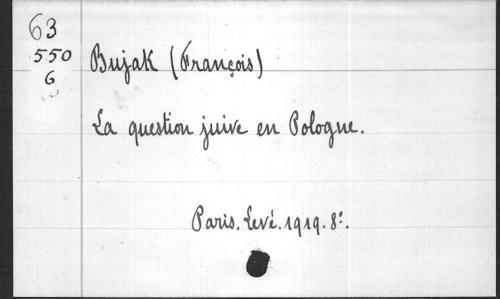 63
550
6
Bujak (François)
La question juive en Pologne.
Paris. Levé. 1919. 8°.